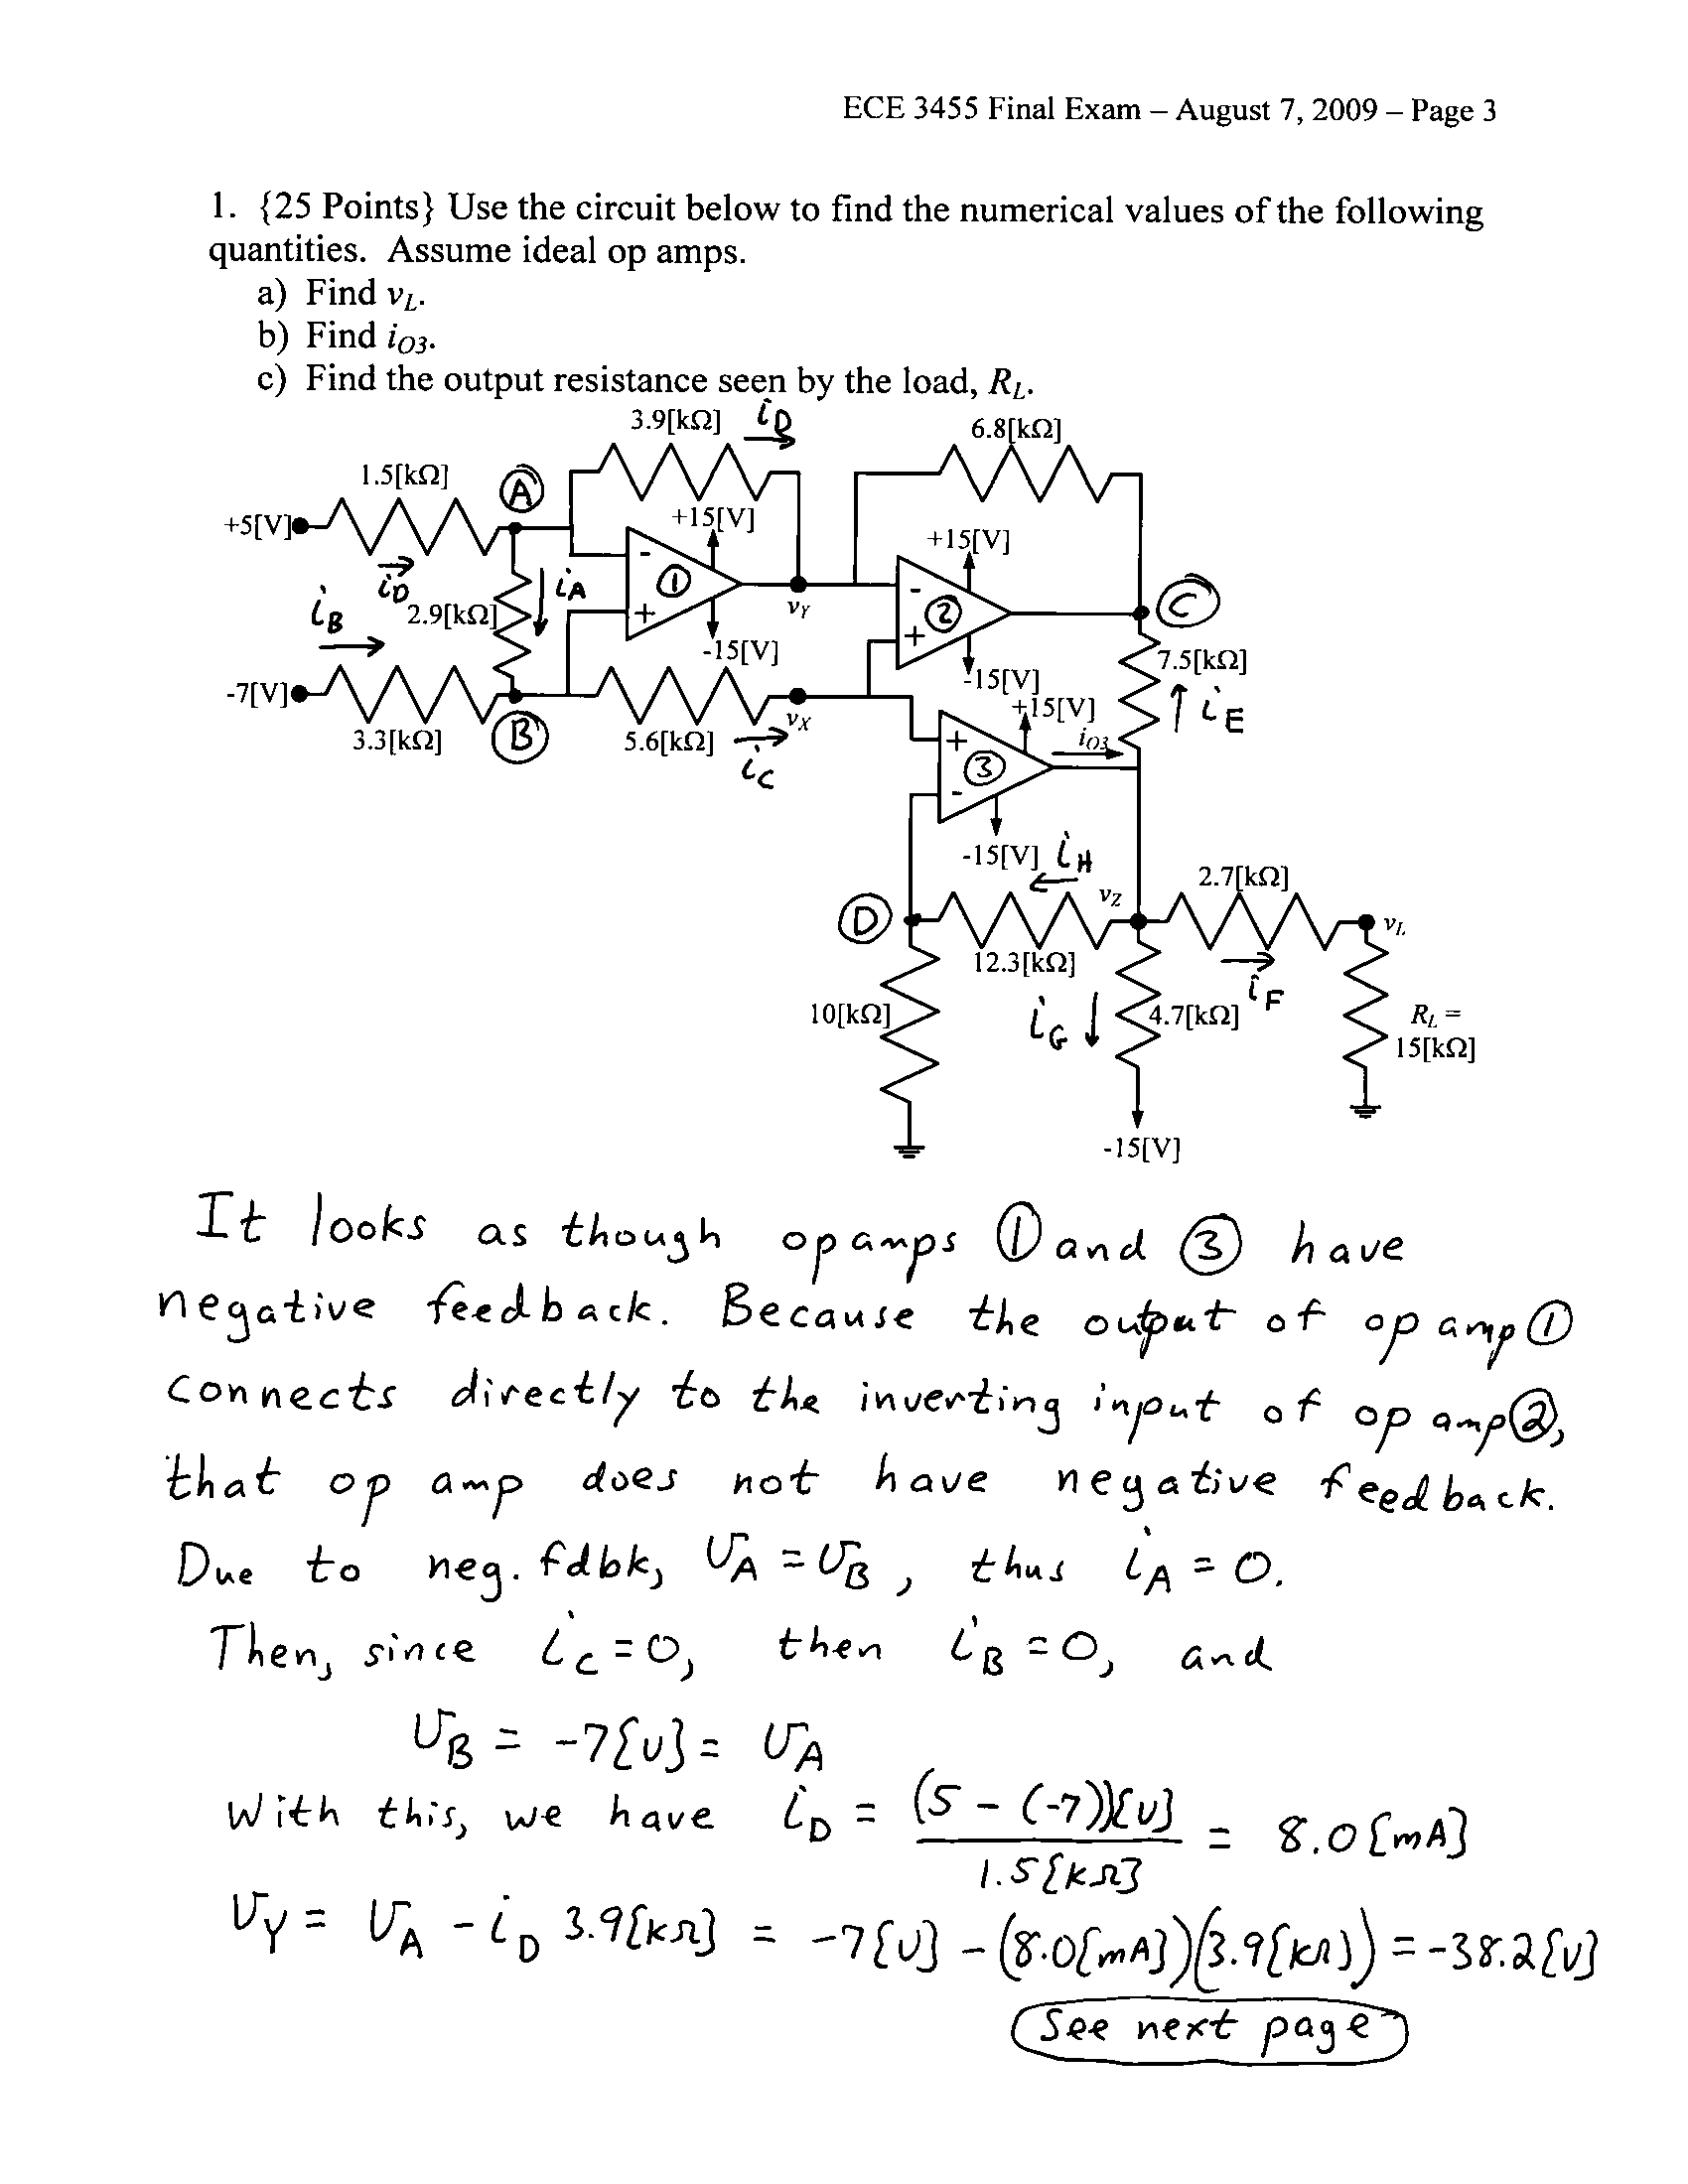 ECE 3455 Final Exam – August 7, 2009 – Page 3
1. {25 Points} Use the circuit below to find the numerical values of the following
quantities. Assume ideal op amps.
a) Find vL.
b) Find iO3.
c) Find the output resistance seen by the load, RL.
3.9[kΩ] iD
6.8[kΩ]
1.5[kΩ] A
+5[V] +15[V] +15[V]
iD iA - 1 - 2 C
iB 2.9[kΩ] + vY +
-15[V] 7.5[kΩ]
-7[V] -15[V]
+15[V] iE
3.3[kΩ] B 5.6[kΩ] vX iO3
iC + 3 -
-15[V] iH
2.7[kΩ]
D vZ vL
12.3[kΩ]
iF
10[kΩ] iG 4.7[kΩ] RL =
15[kΩ]
-15[V]
It looks as though op amps 1 and 3 have
negative feedback. Because the output of op amp 1
connects directly to the inverting input of op amp 2,
that op amp does not have negative feedback.
Due to neg. fdbk, vA = vB, thus iA = 0.
Then, since iC = 0, then iB = 0, and
vB = -7[V] = vA
With this, we have iD = (5 - (-7))[V] / 1.5[kΩ] = 8.0[mA]
vY = vA - iD 3.9[kΩ] = -7[V] - (8.0[mA])(3.9[kΩ]) = -38.2[V]
See next page